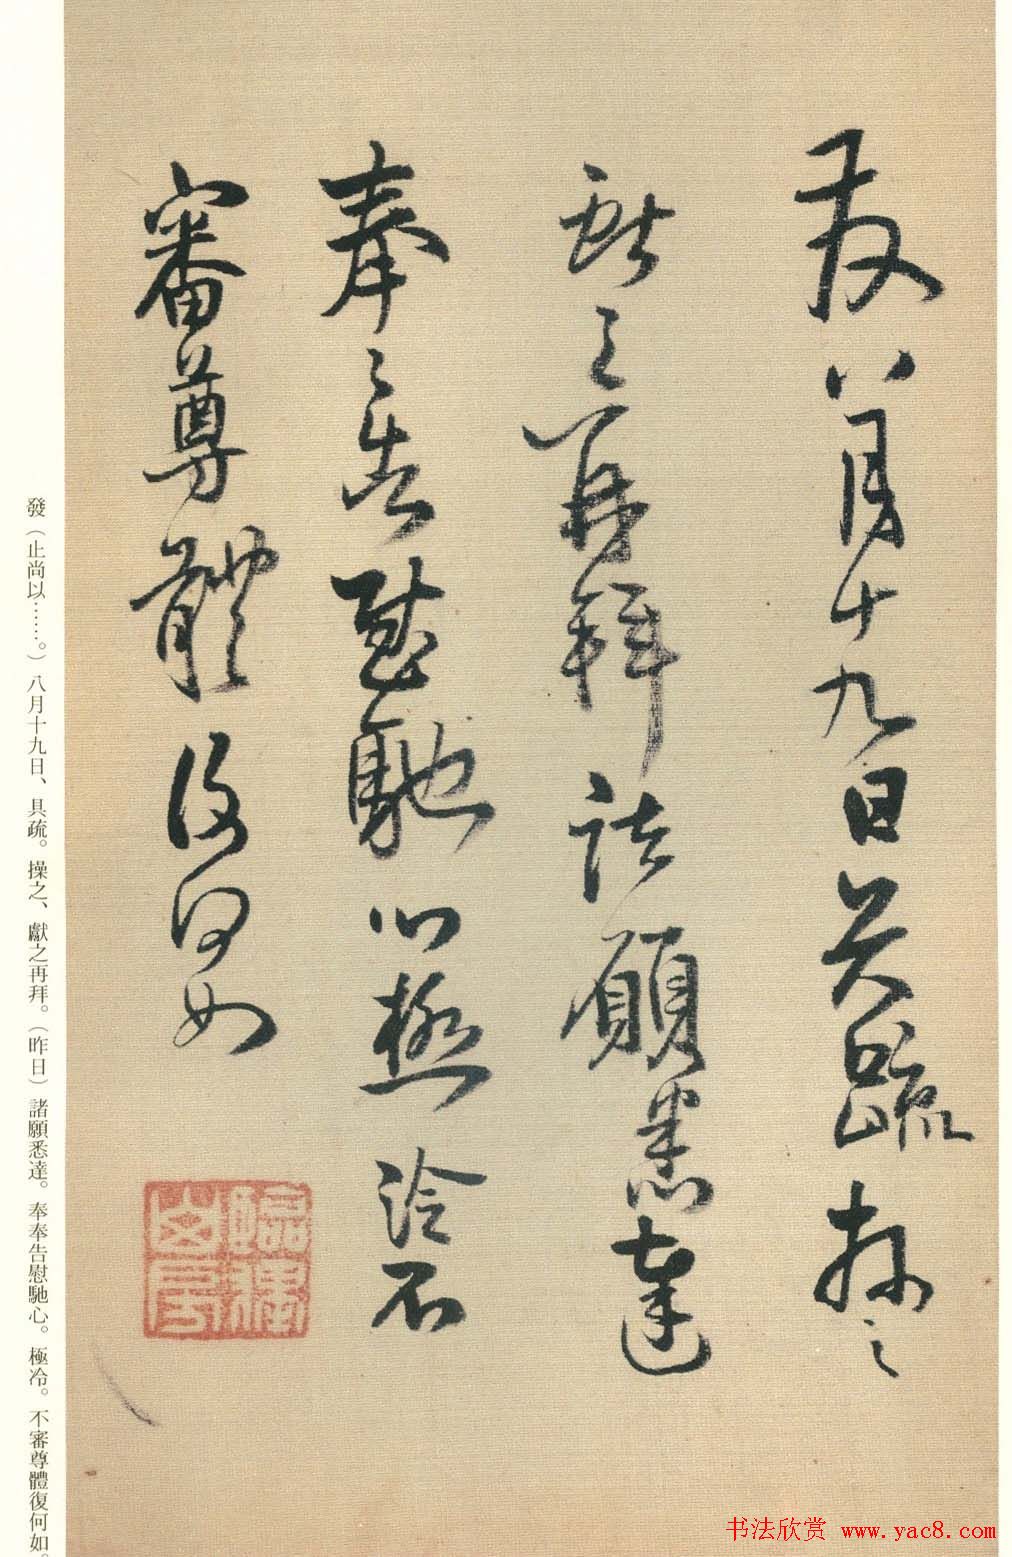 發八月十九日具疏操之
獻之再拜諸願悉達
奉〻告慰馳心極冷不
審尊體復何如
發（止尚以……。）八月十九日、具疏。操之、獻之再拜。（昨日）諸願悉達。奉奉告慰馳心。極冷。不審尊體復何如。
书法欣赏 www.yac8.com